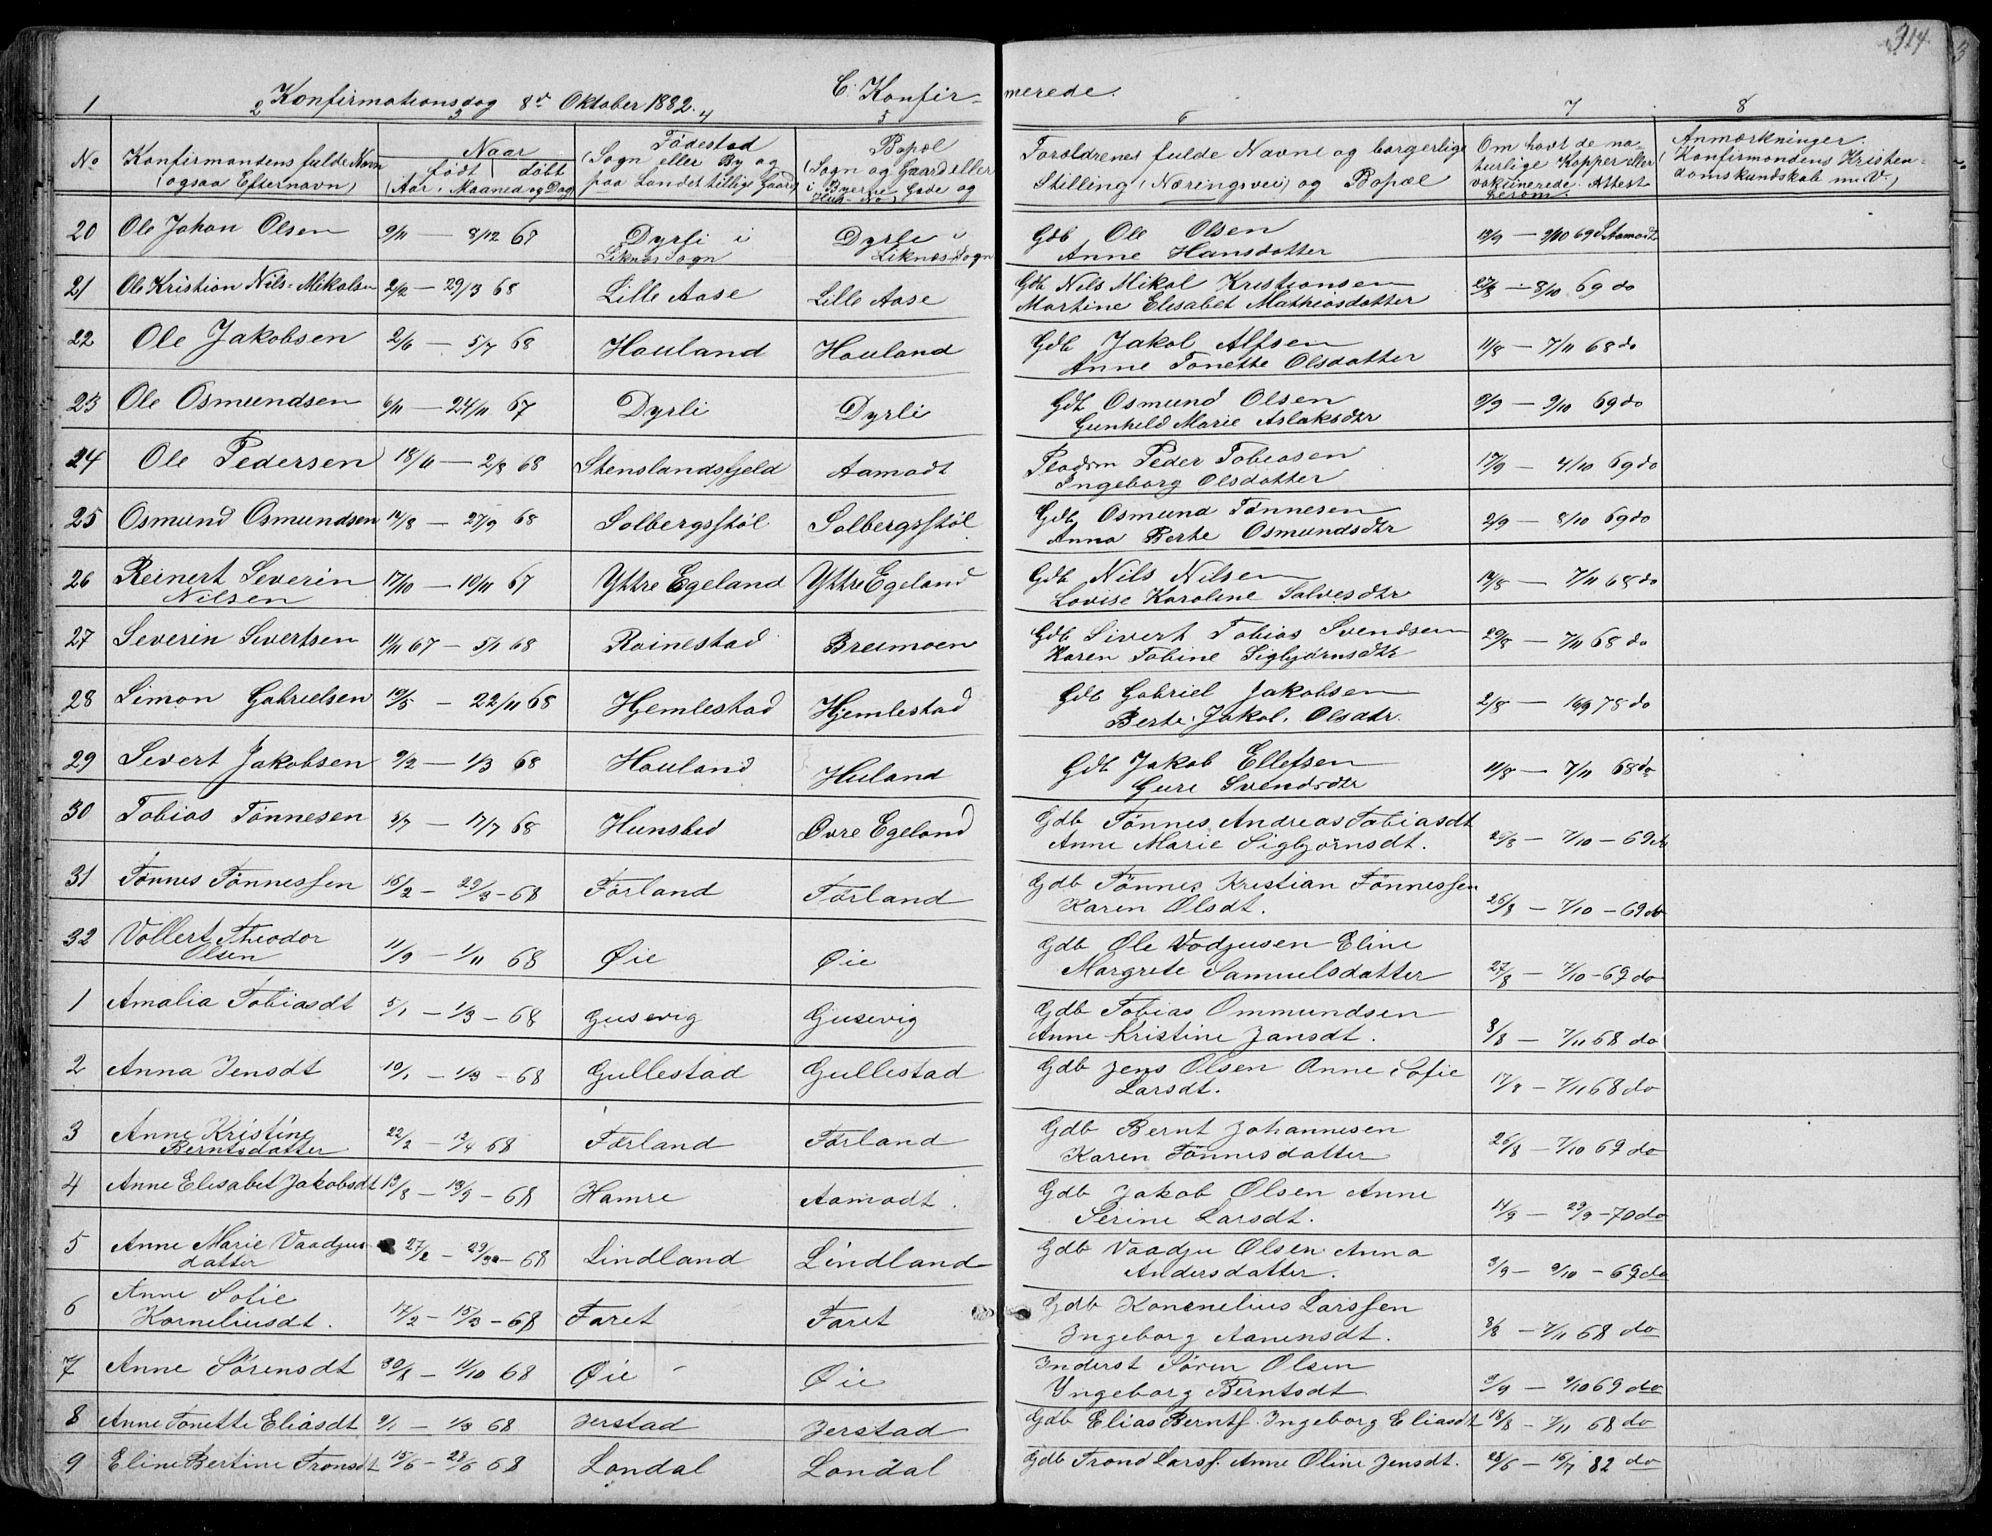 314
C. Konfirmerede.
Konfirmationsdag 8de Oktober 1882.
1 2 3 4 5 6 7 8
No
Konfirmandens fulde Navn (ogsaa Efternavn)
Naar født døbt (Aar, Maaned og Dag)
Fødestad (Sogn eller By og paa Landet tillige Gaard)
Bopæl (Sogn og Gaard eller i Byerne Gade og Hus-No)
Forældrenes fulde Navne og borgerlige Stilling (Næringsvei) og Bopæl
Om havt de naturlige Kopper eller vakcinerede. Attest herom
Anmærkninger. (Konfirmandens Kristendomskundskab m. V.)
20 Ole Johan Olsen 9/11 — 8/12 67 Dyrli i Liknæs Sogn Dyrli i Liknæs Sogn Gdb Ole Olsen Anne Hansdatter 12/9 — 9/10 69 S. Aamodt
21 Ole Kristian Nils-Mikalsen 2/2 — 29/3 68 Lille Aase Lille Aase Gdb Nils Mikal Kristiansen Martine Elisabet Mathiasdatter 27/8 — 8/10 69 do
22 Ole Jakobsen 2/6 — 5/7 68 Hauland Hauland Gdb Jakob Alfsen Anne Tonette Olsdatter 11/8 — 7/11 68 do
23 Ole Osmundsen 6/11 — 24/11 67 Dyrli Dyrli Gdb Osmund Olsen Gunheld Marie Aslaksdtr 9/9 — 9/10 69 do
24 Ole Pedersen 18/6 — 2/8 68 Stenslandsfjeld Aamodt Pladsm Peder Tobiasen Ingeborg Olsdatter 17/9 — 4/10 69 do
25 Osmund Osmundsen 12/8 — 27/9 68 Solbergsstøl Solbergsstøl Gdb Osmund Tønnesen Anna Berte Osmundsdtr 2/9 — 8/10 69 do
26 Reinert Severin Nilsen 17/10 — 10/11 67 Yttre Egeland Yttre Egeland Gdb Nils Nilsen Lovise Karoline Salvesdtr 12/8 — 7/11 68 do
27 Severin Sivertsen 11/11 67 — 5/1 68 Roinestad Breimoen Gdb Sivert Tobias Svendsen Karen Tobine Sigbjørnsdtr 29/8 — 7/11 68 do
28 Simon Gabrielsen 19/5 — 22/11 68 Hjemlestad Hjemlestad Gdb Gabriel Jakobsen Berte Jakob. Olsdtr. 2/8 — 78 do
29 Severt Jakobsen 9/2 — 1/3 68 Hauland Huland Gdb Jakob Ellefsen Guri Svendsdtr 11/8 — 7/11 68 do
30 Tobias Tønnesen 5/7 — 17/7 68 Hunsbed Øvre Egeland Gdb Tønnes Andreas Tobiasdt Anne Marie Sigbjørnsdt. 20/8 — 7/10 — 69 do
31 Tønnes Tønnessen 16/2 — 29/3 — 68 Førland Førland Gdb Tönnes Kristian Tönnessen Karen Olsdt. 26/8 — 7/10 — 69 do
32 Vollert Theodor Olsen 11/9 — 1/11 68 Øie Øie Gdb Ole Vodjusen Eline Margrete Samuelsdatter 27/8 — 7/10 — 69 do
1 Amalia Tobiasdt 5/1 — 1/3 — 68 Gusevig Gusevig Gdb Tobias Ommundsen Anne Kristine Jansdt. 8/8 — 7/11 68 do
2 Anna Jensdt 10/1 — 1/3 — 68 Gullestad Gullestad Gdb Jens Olsen Anne Sofie Larsdt. 17/8 — 7/11 68 do
3 Anne Kristine Berntsdatter 22/2 — 12/4 68 Førland Førland Gdb Bernt Johannesen Karen Tönnesdatter 26/8 — 7/10 69 do
4 Anne Elisabet Jakobsdt 13/8 — 13/9 — 68 Hamre Aamodt. Gdb Jakob Olsen Anne Serine Larsdt. 14/9 — 29/9 — 70 do
5 Anne Marie Vaadjusdatter 27/2 — 29/3 — 68 Lindland Lindland Gdb Vaadju Olsen Anna Andersdatter. 3/9 — 9/10 — 69 do
6 Anne Sofie Korneliusdt. 17/2 — 15/3 — 68 Faret Faret Gdb Konenelius Larssen Ingeborg Aanensdt. 8/8 — 7/11 68 do
7 Anne Sörensdt 30/8 — 11/10 68 Øie Øie Inderst Sören Olsen Yngeborg Berntsdt 9/9 — 9/10 69 do
8 Anne Tonette Eliasdt 9/1 — 1/3 68 Jerstad Jerstad Gdb Elias Berntf. Ingeborg Eliasdt 18/8 — 7/11 68 do
9 Eline Bertine Tronsdt 15/5 — 28/6 68 Londal Londal Gdb Trond Larsf. Anne Oline Jensdt. 28/6 — 15/7 82 do